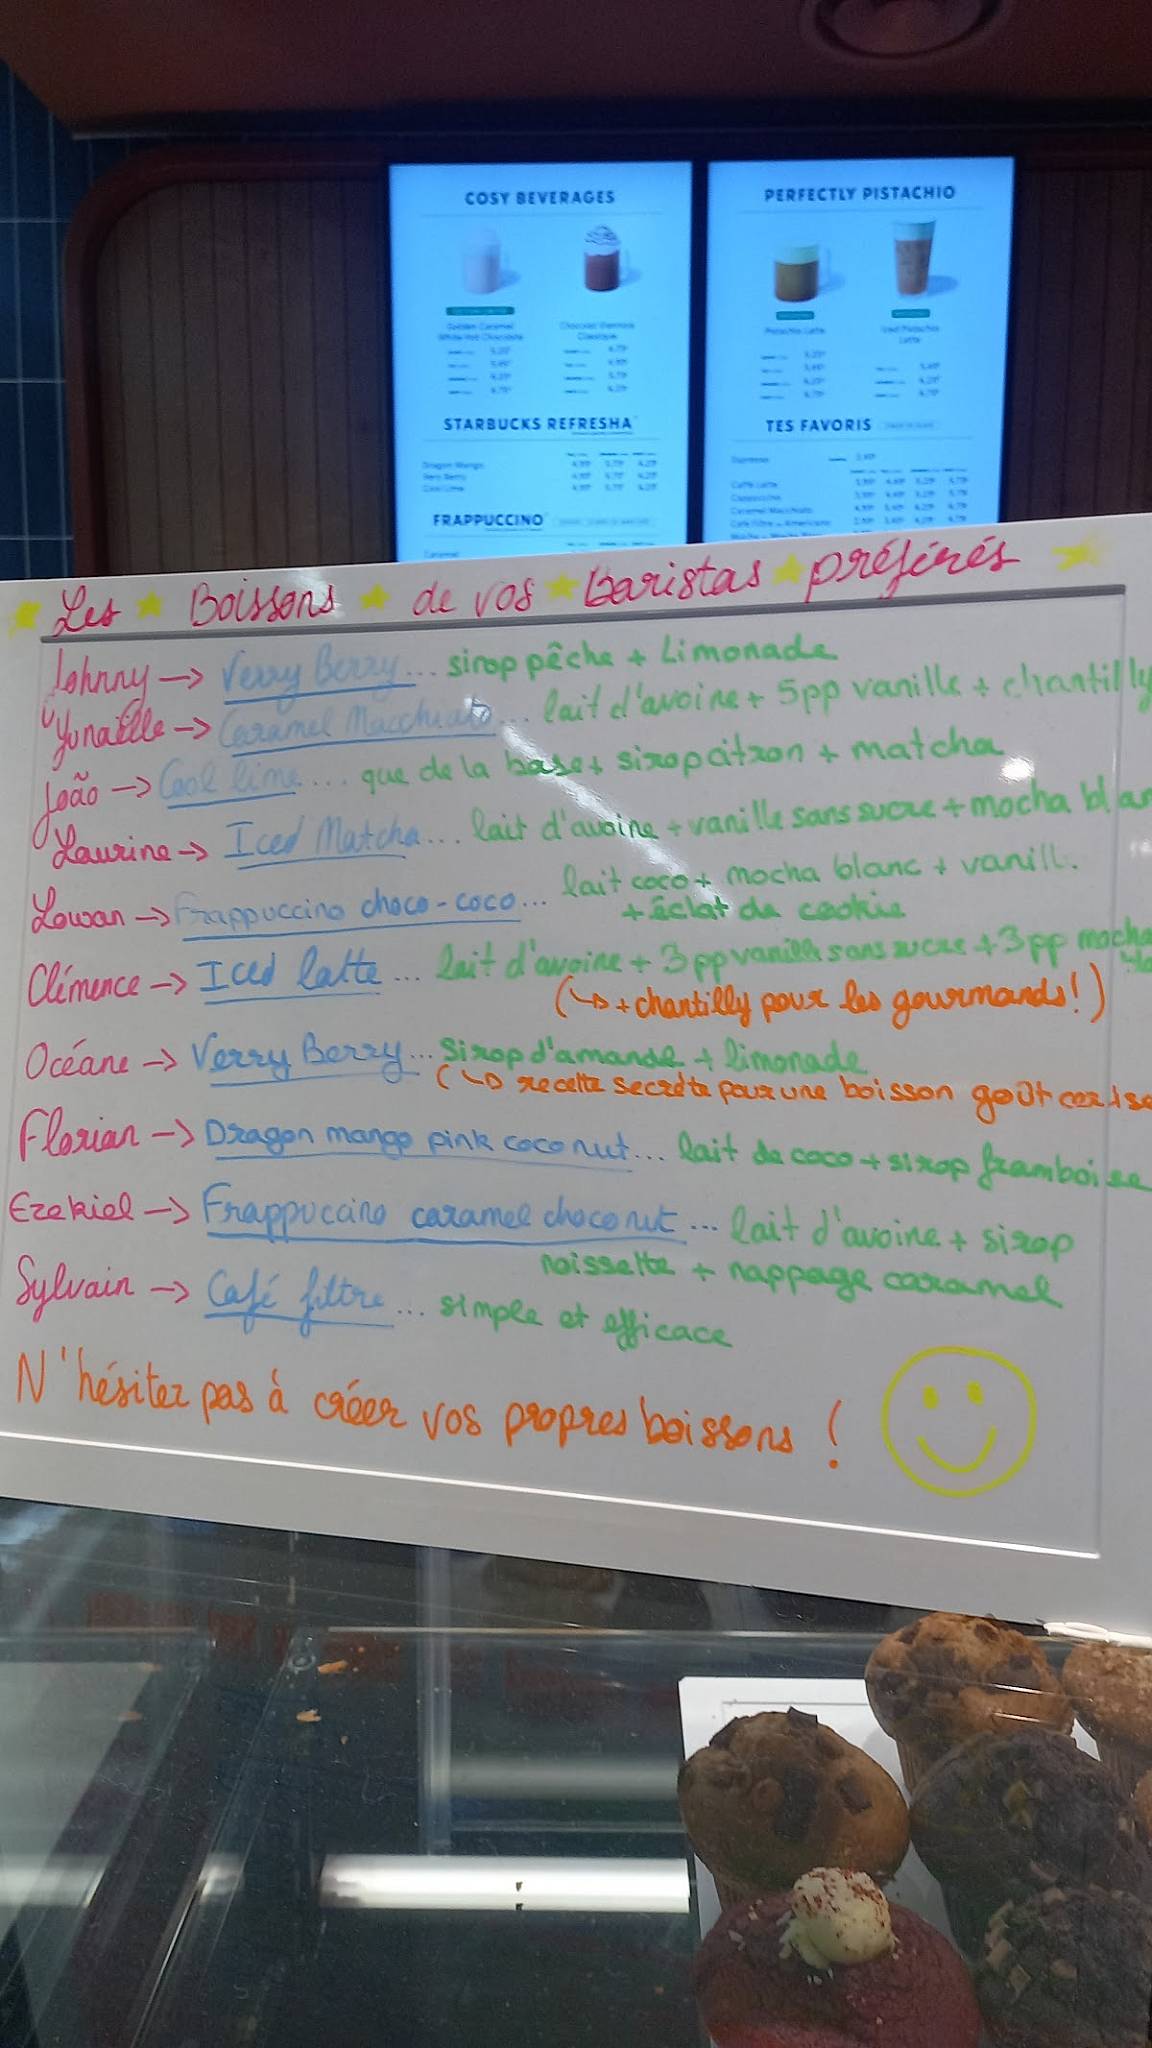 COSY BEVERAGES
Golden Caramel
White Hot Chocolate
Chocolat Viennois
Classique
STARBUCKS REFRESHA
Dragon Mango
Very Berry
Cool Lime
FRAPPUCCINO
Caramel
PERFECTLY PISTACHIO
Pistachio Latte
Iced Pistachio
Latte
TES FAVORIS
Espresso
Caffè Latte
Cappuccino
Caramel Macchiato
Les Boissons de vos Baristas préférés
Johnny → Verry Berry... sirop pêche + Limonade
Yunaëlle → Caramel Macchiato... lait d'avoine + 5pp vanille + chantilly
João → Cool lime... que de la base + sirop citron + matcha
Laurine → Iced Matcha... lait d'avoine + vanille sans sucre + mocha blan
Lowan → Frappuccino choco-coco... lait coco + mocha blanc + vanill
+ éclat de cookie
Clémence → Iced latte... lait d'avoine + 3pp vanille sans sucre + 3pp mocha
(↳ + chantilly pour les gourmands!)
Océane → Verry Berry... Sirop d'amande + limonade
(↳ recette secrète pour une boisson goût cerise
Florian → Dragon mango pink coconut... lait de coco + sirop framboise
Ezekiel → Frappuccino caramel choco nut... lait d'avoine + sirop
noisette + nappage caramel
Sylvain → Café filtre... simple et efficace
N'hésitez pas à créer vos propres boissons !